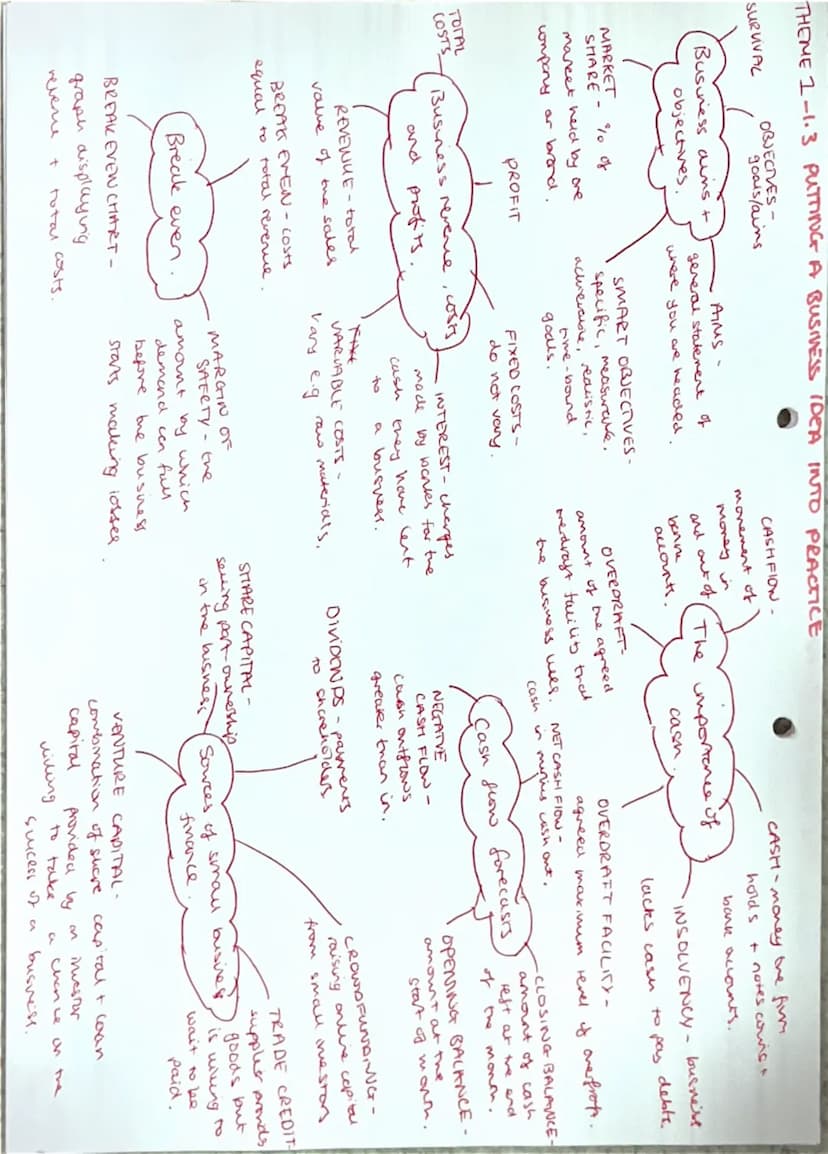 THEME 1-1.3 PUTTING A BUSINESS IDEA INTO PRACTICE
Business aims +
objectives.
SURVIVAL
OBJECTIVES -
goals/aims
AIMS -
general statement of
where you are headed.
MARKET
SHARE - % of
market held by one
company or brand.
SMART OBJECTIVES -
specific, measurable,
achievable, realistic,
time-bound
goals.
Business revenue, costs
and profits.
TOTAL
COSTS
PROFIT
FIXED COSTS -
do not vary.
REVENUE - total
value of the sales
VARIABLE COSTS -
vary e.g. raw materials.
INTEREST - charges
made by banks for the
cash they have lent
to a business.
Break even.
BREAK EVEN - costs
equal to total revenue.
BREAK EVEN CHART -
graph displaying
revenue + total costs.
MARGIN OF
SAFETY - the
amount by which
demand can fall
before the business
starts making losses.
The importance of
cash.
CASHFLOW -
movement of
money in
and out of
bank
accounts.
CASH - money the firm
holds + notes coins +
bank accounts.
OVERDRAFT -
amount of the agreed
overdraft facility that
the business uses.
OVERDRAFT FACILITY -
agreed maximum level of
INSOLVENCY - business
lacks cash to pay debts.
Cash flow forecasts
NET CASH FLOW -
cash in minus cash out.
NEGATIVE
CASH FLOW -
cash outflows
greater than in.
CLOSING BALANCE -
amount of cash
left at the end
of the month.
OPENNING BALANCE -
amount at the
start of month.
Sources of small business
finance.
SHARE CAPITAL -
selling part-ownership
in the business.
DIVIDENDS - payments
to shareholders
CROWDFUNDING -
raising online capital
from small investors
TRADE CREDIT
supplier provides
goods but
is willing to
wait to be
paid.
VENTURE CAPITAL -
combination of share capital + loan
capital provided by an investor
willing to take a chance on the
success of a business.